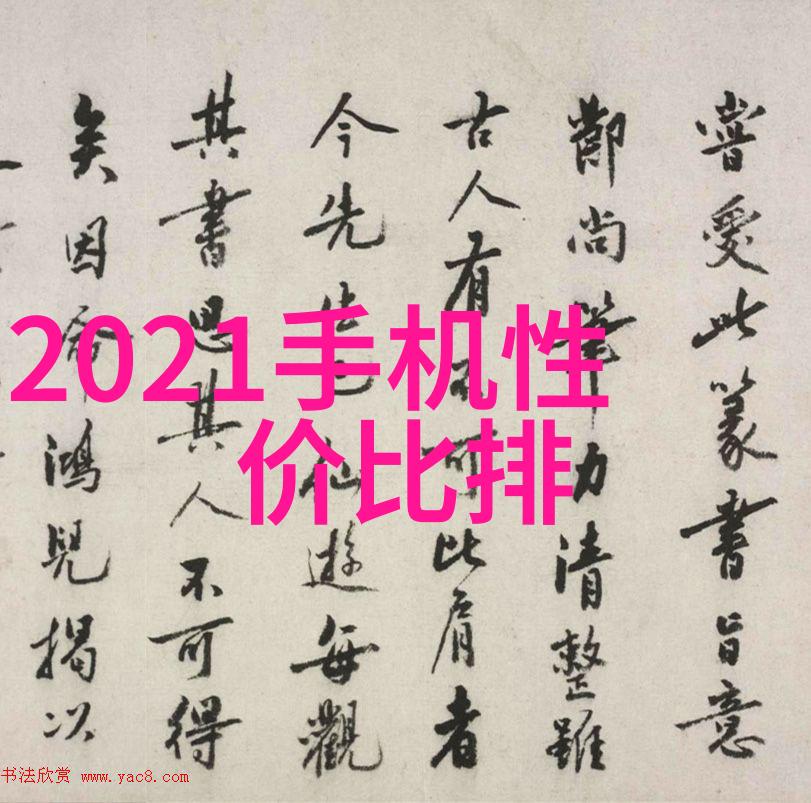 2021手机性
价比排
甞受此篆書旨意
尚筆力清整雖
古人有不可比肩者
今先生已仙遊每觀
其書思其人不可得
矣因鴻兒揭以
书法欣赏 www.yac8.com